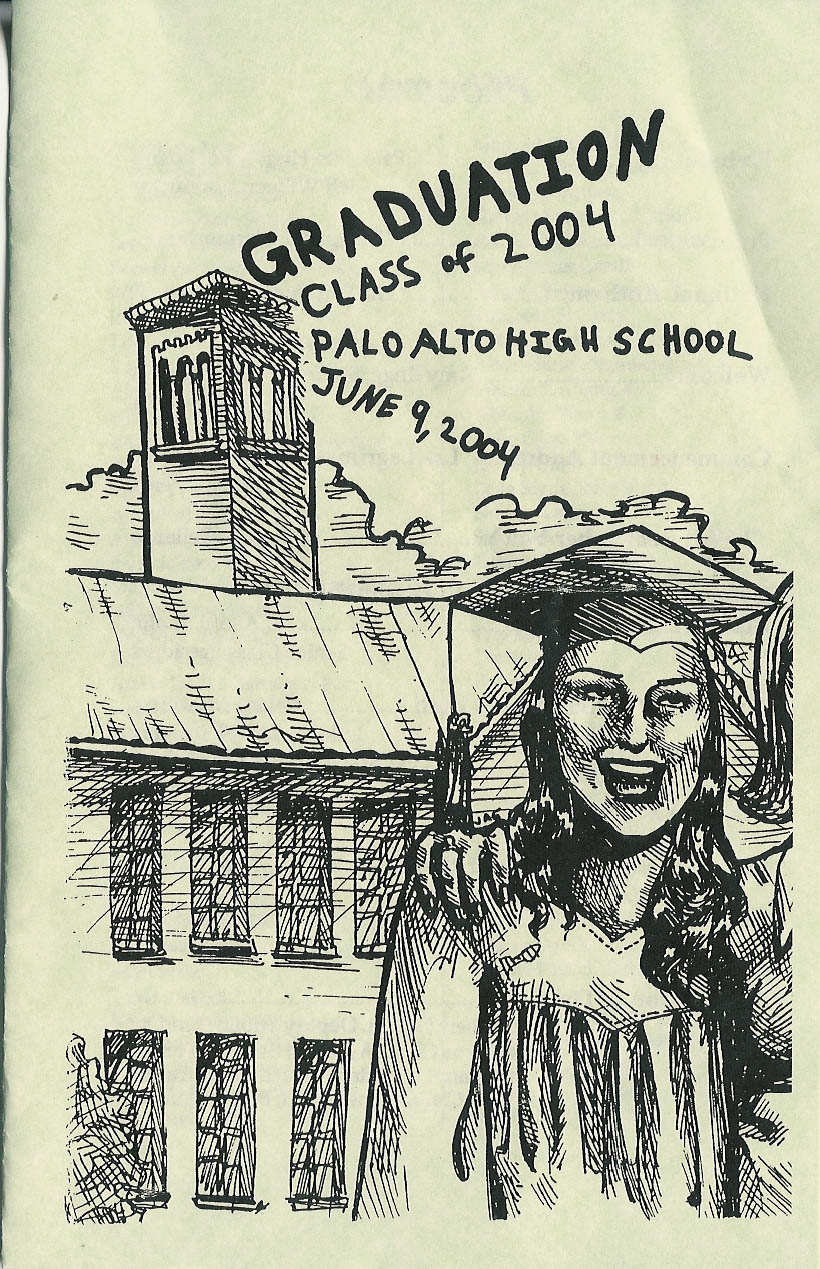 GRADUATION
CLASS of 2004
PALO ALTO HIGH SCHOOL
JUNE 9, 2004